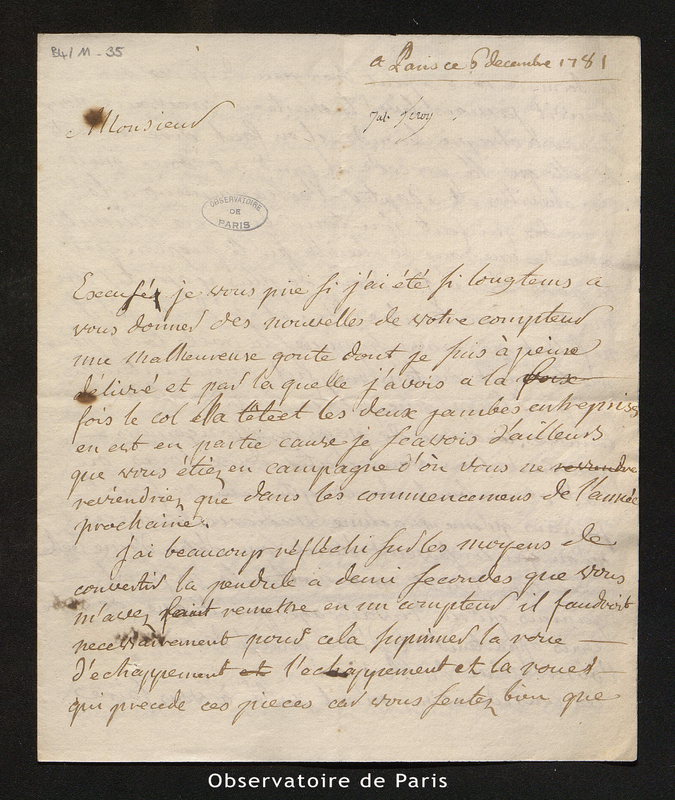 B4/M-35
a Paris ce 6 decembre 1781
Monsieur
Jul.
OBSERVATOIRE
DE
PARIS
Excusés je vous prie si j'ai été si longtems a
vous donner des nouvelles de votre compteur
une malheureuse goute dont je suis à peine
délivré et par la quelle j'avois a la foix
fois le col la tête et les deux jambes entreprises
en est en partie cause je scavois d'ailleurs
que vous étiez en campagne d'ôu vous ne
reviendriez que dans les commencemens de l'année
prochaine.
J'ai beaucoup réflechi sur les moyens de
convertir la pendule a demi secondes que vous
m'avez faint remettre en un compteur il faudroit
necessairement pour cela suprimer la roue
d'echappement et l'echappement et la roue
qui precede ces pieces car vous sentez bien que
Observatoire de Paris